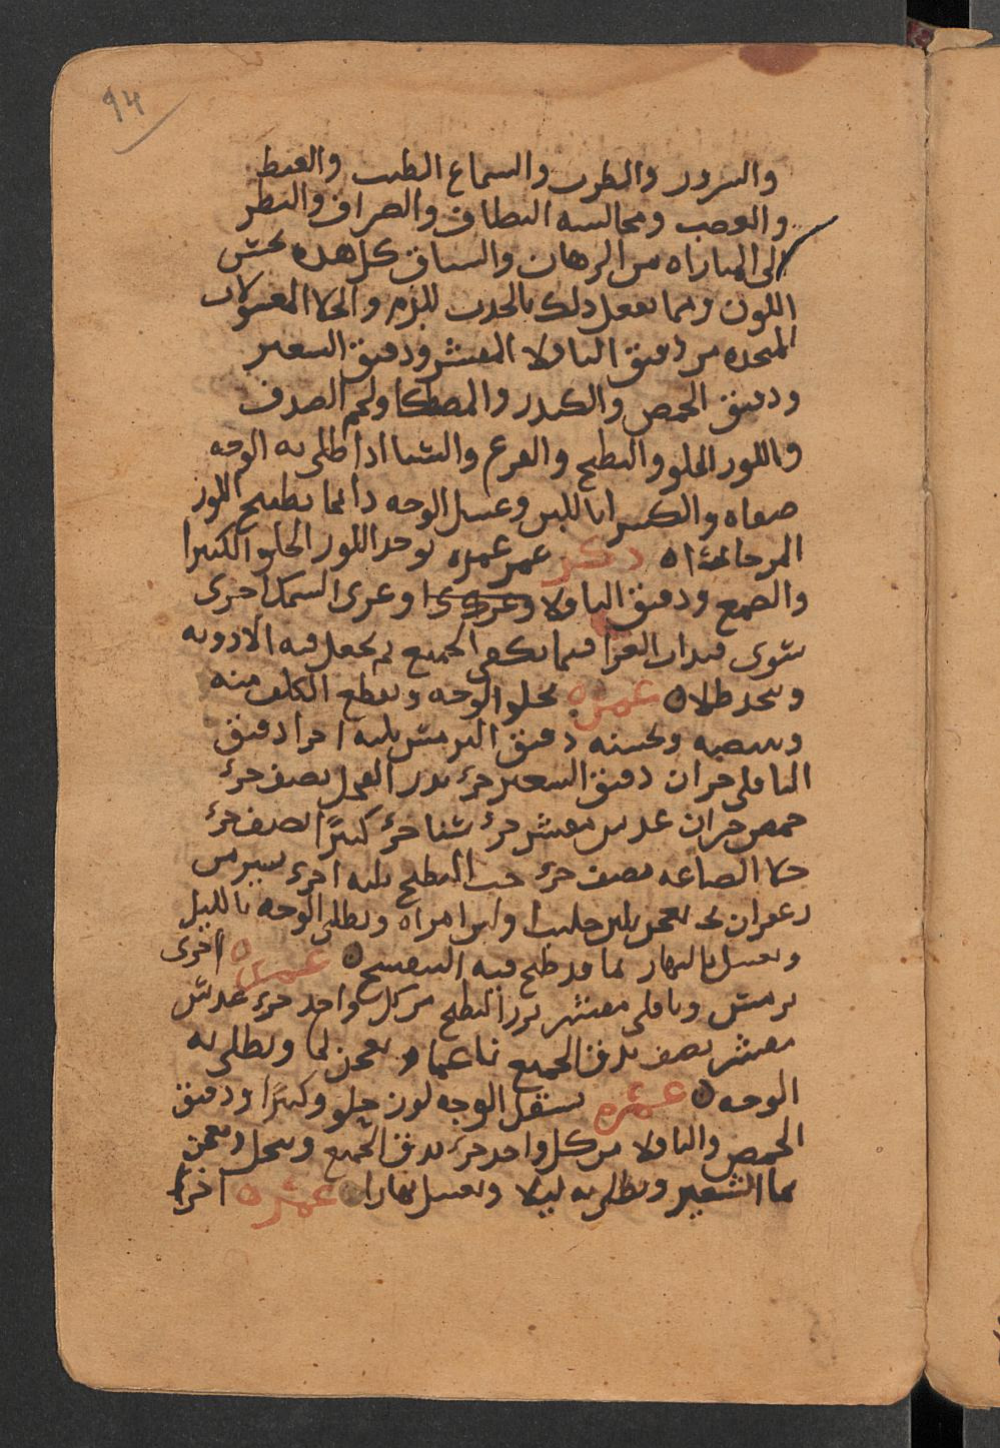 94
والسرور والطرب والسماع الطيب والغيظ
والغضب ومجالسه النظاف والظراف والنظر
الى المباراه من الرهان والسباق كل هذه تحسن
اللون ومما يفعل ذلك بالجذب للدم والجلا الغسولات
المتخذه من دقيق الباقلا المقشر ودقيق الشعير
ودقيق الحمص والكندر والمصطكا ولحم الصدف
واللوز الحلو والبطيخ والقرع والنشا اذا طلى به الوجه
صفاه والكثيرا باللبن وغسل الوجه دائما بطبيخ اللوز
المر حا ذكر غمر غمره يوخذ اللوز الحلو والكثيرا
والصمغ ودقيق الباقلا وغرى السمك اجزى
سوى فيذاب الغرا فيما يكفى الجميع ثم يجعل فيه الادويه
ويتخذ طلا غمره يجلو الوجه ويقطع الكلف منه
ويصفيه ويحسنه دقيق الترمس ثلثه اجزا دقيق
الباقلى جزان دقيق الشعير جزء بزر الفجل نصف جزء
حمص جزان عدس مقشر جزء نشا جزء كثيرًا نصف جزء
الصاغه نصف جزء حب البطيخ ثلثه اجزى يسير من
زعفران يعجن بلبن حليب ولبن امراه ويطلى الوجه بالليل
ويغسل بالنهار بما قد طبخ فيه البنفسج غمره اخرى
ترمس وباقلى مقشر بزر البطيخ من كل واحد جزء عدس
مقشر نصف يدق الجميع ناعما ويعجن بما ويطلى به
الوجه غمره تنقى الوجه لوز حلو وكثيرًا ودقيق
الحمص والباقلا من كل واحد جزء يدق الجميع وينخل ويعجن
بما الشعير ويطلى به ليلا ويغسل نهارا غمره اخرا